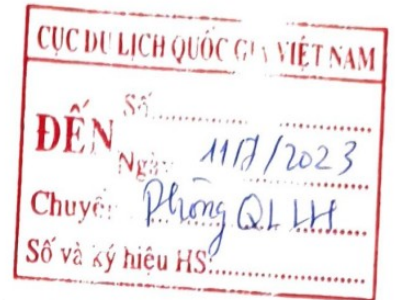 CỤC DU LỊCH QUỐC GIA VIỆT NAM
ĐẾN
Số:
Ngày: 11/7/2023
Chuyển: Phòng QLLH
Số và ký hiệu HS: